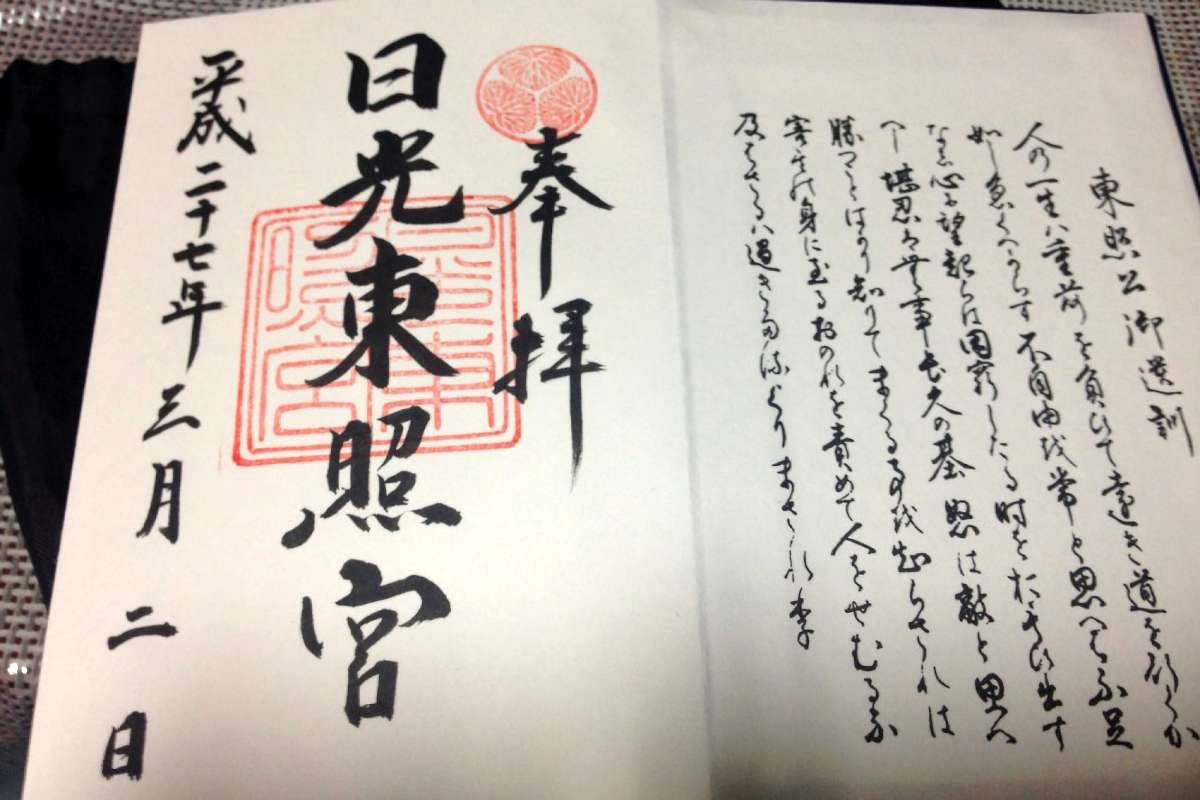 東照公御遺訓
人の一生ハ重荷を負ひて遠き道を行くか
如し急くへからす不自由を常と思へは不足
なし心に望起らは困窮したる時をおもひ出す
へし堪忍は無事長久の基 怒は敵と思へ
勝つことはかり知りてまくる事を知らされは
害其の身に至るおのれを責めて人をせむるな
及はさるハ過きたるよりまされり
奉拝
日光東照宮
平成二十七年三月二日